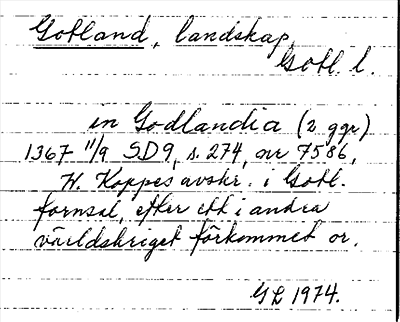 Gotland, landskap,
Gotl. l.
in Godlandia (2 ggr)
1367 11/9 SD9, s. 274, nr 7586,
H. Koppes avskr. i Gotl.
fornsal, efter ett i andra
världskriget förkommet or.
GL 1974.